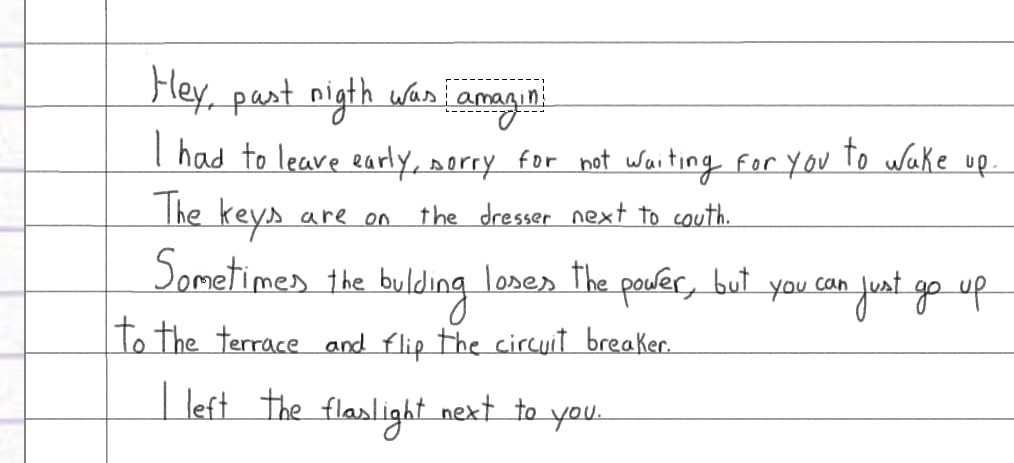 Hey, past nigth was amazin
I had to leave early, sorry for not waiting for you to wake up.
The keys are on the dresser next to couth.
Sometimes the bulding loses the power, but you can just go up
to the terrace and flip the circuit breaker.
I left the flaslight next to you.